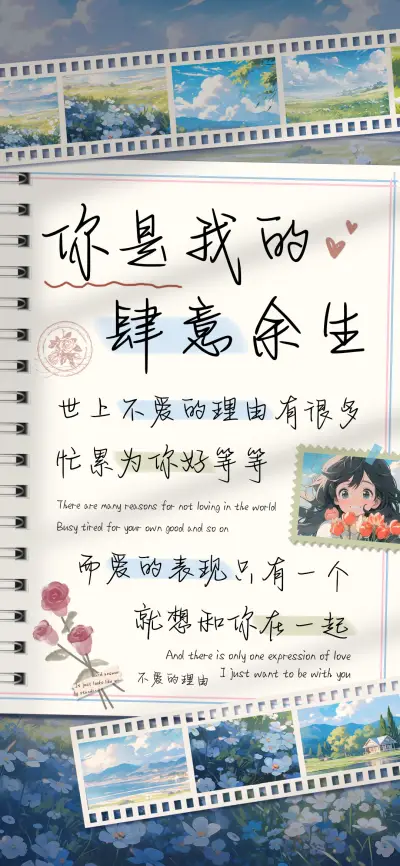 你是我的
肆意余生
世上不爱的理由有很多
忙累为你好等等
There are many reasons for not loving in the world
Busy tired for your own good and so on
而爱的表现只有一个
就想和你在一起
And there is only one expression of love
不爱的理由 I just want to be with you